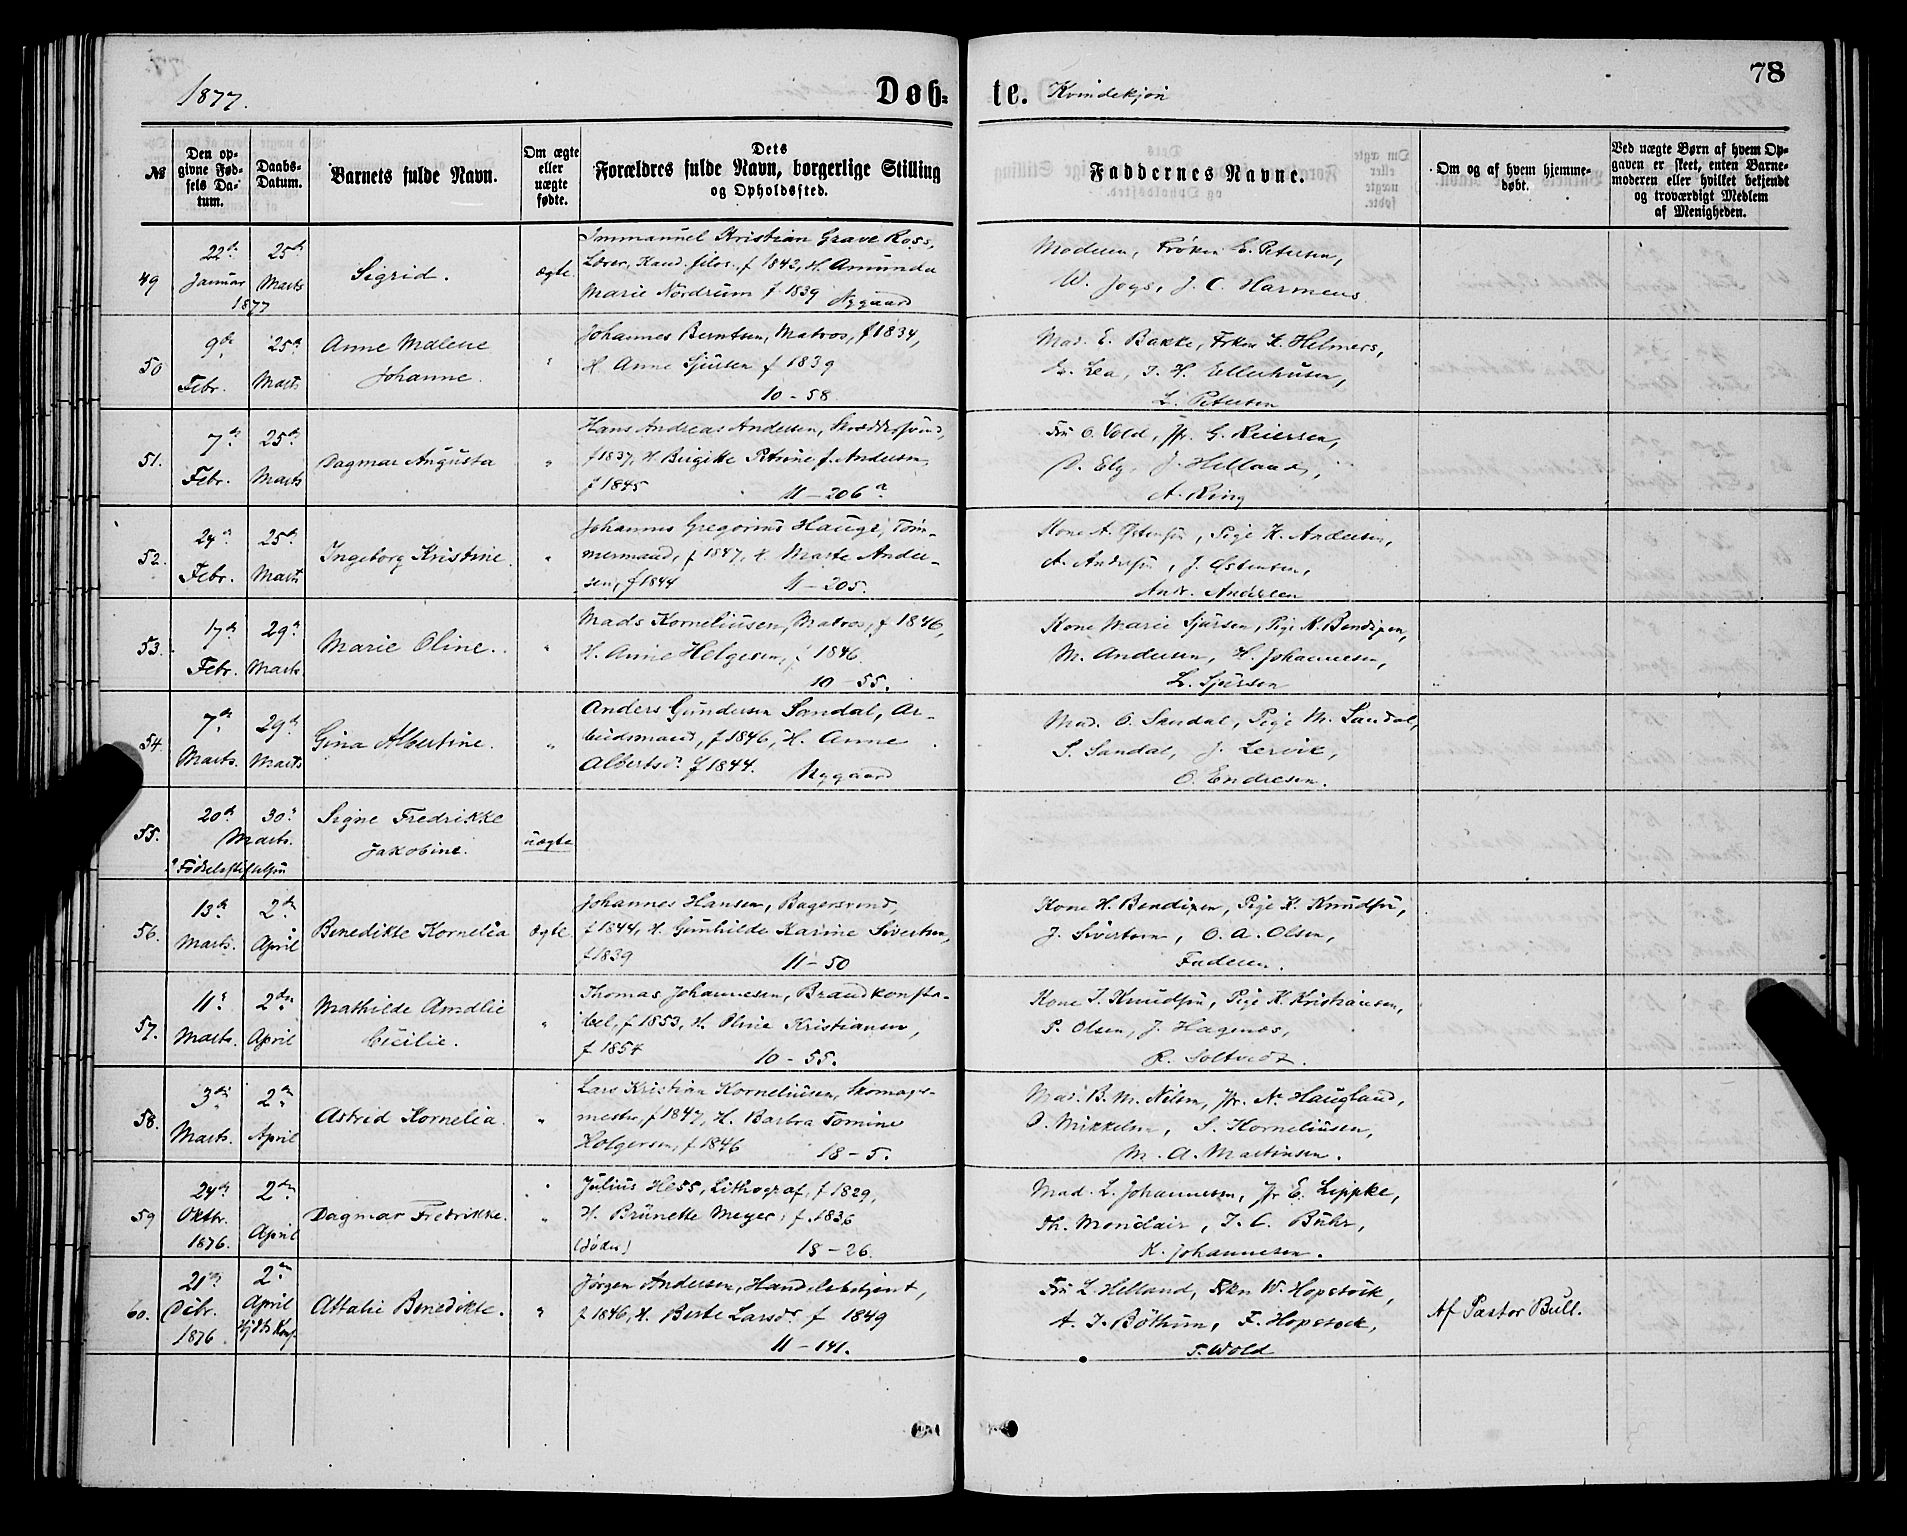 1877.
Døb=
te. Kvindekjøn
78
№
Den op-
givne Fød-
sels Da-
tum.
Daabs-
Datum.
Barnets fulde Navn.
Om ægte
eller
uægte
fødte.
Dets
Forældres fulde Navn, borgerlige Stilling
og Opholdssted.
Faddernes Navne.
Om og af hvem hjemme-
døbt.
Ved uægte Børn af hvem Op-
gaven er skeet, enten Barne-
moderen eller hvilket bekjendt
og troværdigt Medlem
af Menigheden.
49
22de
Januar
1877
25de
Marts
Sigrid.
ægte
Immanuel Kristian Grave Ross,
Lærer, Kand. filos. f 1842, H. Amunda
Marie Nordrum f. 1839 Nygaard
Moderen, Frøken E. Petersen,
W. Joys, J. C. Harmens
50
9de
Febr.
25de
Marts
Anne Malene
Johanne.
"
Johannes Berntsen, Matros, f 1834,
H. Anne Sjursen f 1839
10 - 58.
Mad. E. Bakke, Frkn K. Helmers,
Er. Lea, J. H. Ellerhusen,
L. Petersen
51.
7de
Febr.
25de
Marts
Dagmar Augusta
"
Hans Andreas Andersen, Skræddersvend,
f 1837, H. Birgitte Petrine f. Andersen,
f 1845 11 - 206 a.
Fru O. Vold, Jfr. G. Reiersen,
D. Ely, J. Helland,
A. Ring
52.
24de
Febr.
25de
Marts
Ingeborg Kristine.
"
Johannes Gregorius Hauge, Tøm-
mermand, f 1847, H. Marte Ander-
sen, f 1844 11 - 205.
Kone A. Østensen, Pige K. Andersen,
A. Andersen, J. Østensen,
Andr. Andersen
53.
17de
Febr.
29de
Marts
Marie Oline.
"
Mads Korneliusen, Matros, f 1846,
H. Anne Helgesen, f 1846
10 - 55.
Kone Marie Sjursen, Pige N. Bendixen,
M. Andersen, H. Johannesen,
L. Sjursen
54.
7de
Marts.
29de
Marts
Gina Albertine.
"
Anders Gundersen Sandal, Ar-
beidsmand, f 1846, H. Anne
Albertsdr. f 1844. Nygaard
Mad. O. Sandal, Pige M. Sandal,
S. Sandal, J. Lervik,
O. Endresen.
55.
20de 30te
Marts.
Fødselsstiftelsen
Signe Fredrikke
Jakobine.
uægte
56.
13de
Marts.
2den
April
Benedikte Kornelia
ægte
Johannes Hansen, Bagersvend,
f 1844, H. Gunhilde Karine Sivertsen,
f 1839 11 - 50
Kone H. Bendixen, Pige K. Knudsen,
J. Sivertsen, O. A. Olsen,
Faderen.
57.
11te
Marts.
2den
April
Mathilde Amalie
Cecilie.
"
Thomas Johannesen, Brandkonsta-
bel, f 1853, H. Oline Kristiansen,
f 1854 10 - 55.
Kone J. Knudsen, Pige K. Kristiansen,
P. Olsen, J. Hagenæs,
R. Soltvedt.
58.
3die
Marts.
2den
April
Astrid Kornelia
"
Lars Kristian Korneliusen, Skomager-
mester, f 1847, H. Barbra Tomine
Holgersen, f 1846 18 - 5.
Mad. B. M. Nilsen, Jfr. A. Haugland,
O. Mikkelsen, S. Korneliusen,
M. A. Martinsen.
59
24de
Oktbr.
1876.
2den
April
Dagmar Fredrikke.
"
Julius Hess, Lithograf, f 1829,
H. Brünette Meyer, f. 1836
(Jøder) 18 - 26.
Mad. L. Johannesen, Jfr E. Lippke,
Th. Monclair, J. C. Buhr,
K. Johannesen.
60.
21de
Decbr.
1876.
2den
April
Attalie Benedikte.
"
Jørgen Andersen, Handelsbetjent,
f 1846, H. Berte Larsdr. f 1849
11 - 141.
Fru L. Helland, Frkn W. Hopstock,
A. J. Böthun, F. Hopstock,
T. Wold
Af Pastor Bull.